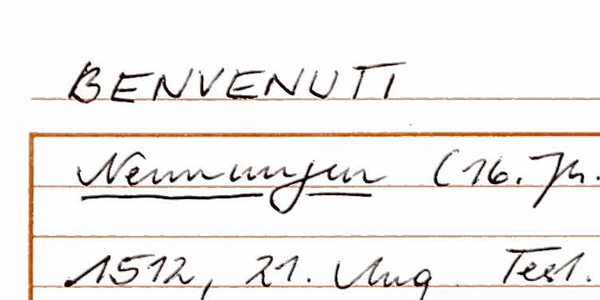 BENVENUTI
Nennungen (16. Jh.
1512, 21. Aug. Test.